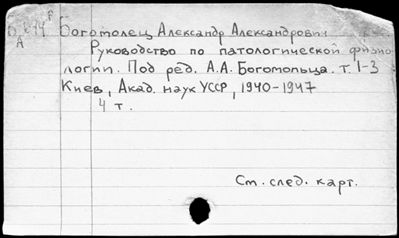 Богомолец Александр Александрович
Руководство по патологической физио
логии. Под ред. А.А. Богомольца. т. 1-3
Киев, Акад. наук УССР, 1940-1947
4 т.
См. след. карт.